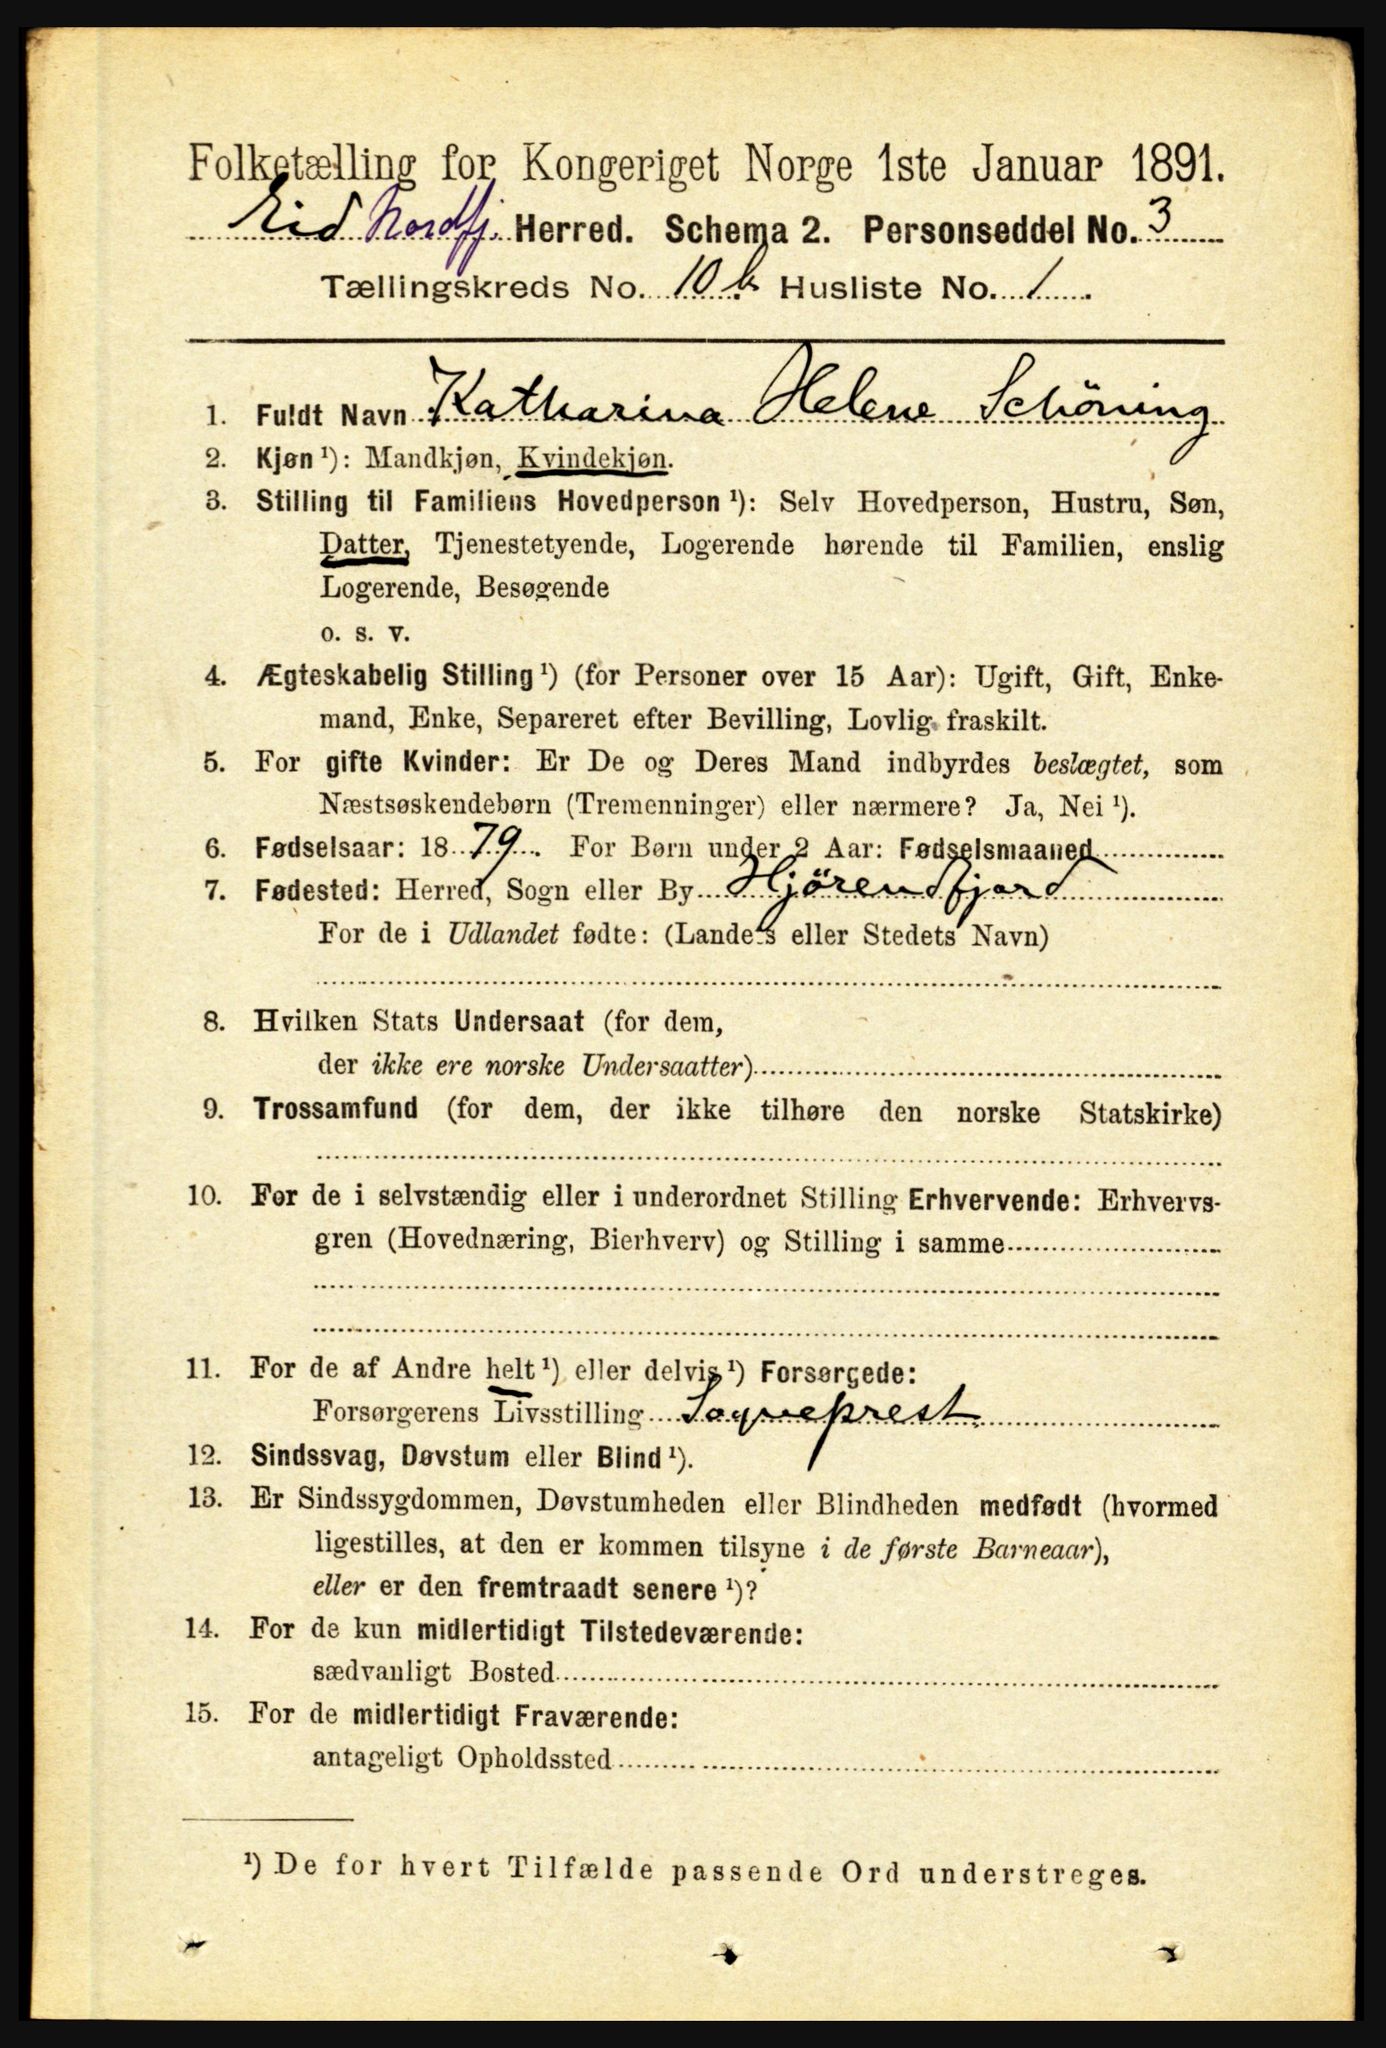 Folketælling for Kongeriget Norge 1ste Januar 1891.
Eid Nordfj. Herred. Schema 2. Personseddel No. 3
Tællingskreds No. 10 b. Husliste No. 1.
1. Fuldt Navn Katharina Helene Schöning
2. Kjøn ¹): Mandkjøn, Kvindekjøn.
3. Stilling til Familiens Hovedperson ¹): Selv Hovedperson, Hustru, Søn,
Datter, Tjenestetyende, Logerende hørende til Familien, enslig
Logerende, Besøgende
o. s. v.
4. Ægteskabelig Stilling ¹) (for Personer over 15 Aar): Ugift, Gift, Enke-
mand, Enke, Separeret efter Bevilling, Lovlig fraskilt.
5. For gifte Kvinder: Er De og Deres Mand indbyrdes beslægtet, som
Næstsøskendebørn (Tremenninger) eller nærmere? Ja, Nei ¹).
6. Fødselsaar: 1879. For Børn under 2 Aar: Fødselsmaaned
7. Fødested: Herred, Sogn eller By Hjörendfjord
For de i Udlandet fødte: (Landets eller Stedets Navn)
8. Hvilken Stats Undersaat (for dem,
der ikke ere norske Undersaatter)
9. Trossamfund (for dem, der ikke tilhøre den norske Statskirke)
10. For de i selvstændig eller i underordnet Stilling Erhvervende: Erhvervs-
gren (Hovednæring, Bierhverv) og Stilling i samme
11. For de af Andre helt ¹) eller delvis ¹) Forsørgede:
Forsørgerens Livsstilling Sogneprest
12. Sindssvag, Døvstum eller Blind ¹).
13. Er Sindssygdommen, Døvstumheden eller Blindheden medfødt (hvormed
ligestilles, at den er kommen tilsyne i de første Barneaar),
eller er den fremtraadt senere ¹)?
14. For de kun midlertidigt Tilstedeværende:
sædvanligt Bosted
15. For de midlertidigt Fraværende:
antageligt Opholdssted
¹) De for hvert Tilfælde passende Ord understreges.